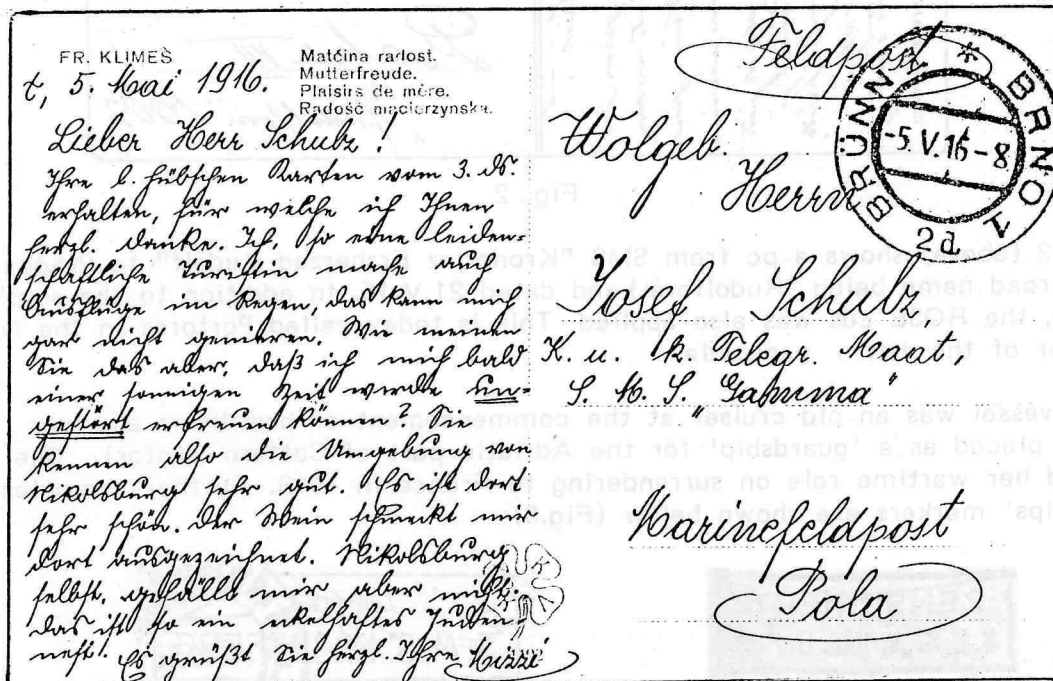 FR. KLIMEŠ
Matčina radost.
Mutterfreude.
Plaisirs de mère.
Radość macierzynska.
5. Mai 1916.
Lieber Herr Schubz!
Ihre l. hübschen Karten vom 3. ds.
erhalten, für welche ich Ihnen
herzl. danke. Ich, so eine leiden-
schaftliche Turistin mache auch
Ausflüge in Regen, das kann mich
gar nicht genieren. Wie meinen
Sie das aber, daß ich mich bald
einer sonnigen Zeit werde un-
gestört erfreuen können? Sie
kennen also die Umgebung von
Nikolsburg sehr gut. Es ist dort
sehr schön. Der Wein schmeckt mir
dort ausgezeichnet. Nikolsburg
selbst, gefällt mir aber nicht.
das ist so ein ekelhaftes Juden-
nest. Es grüßt Sie herzl. Ihre Mizzi
Feldpost
BRÜNN * BRNO 1
-5.V.16-8
2d
Wolgeb.
Herrn
Josef Schubz
K. u. K. Telegr. Maat,
S. M. S. "Gamma"
Marinefeldpost
Pola
Fig. 2